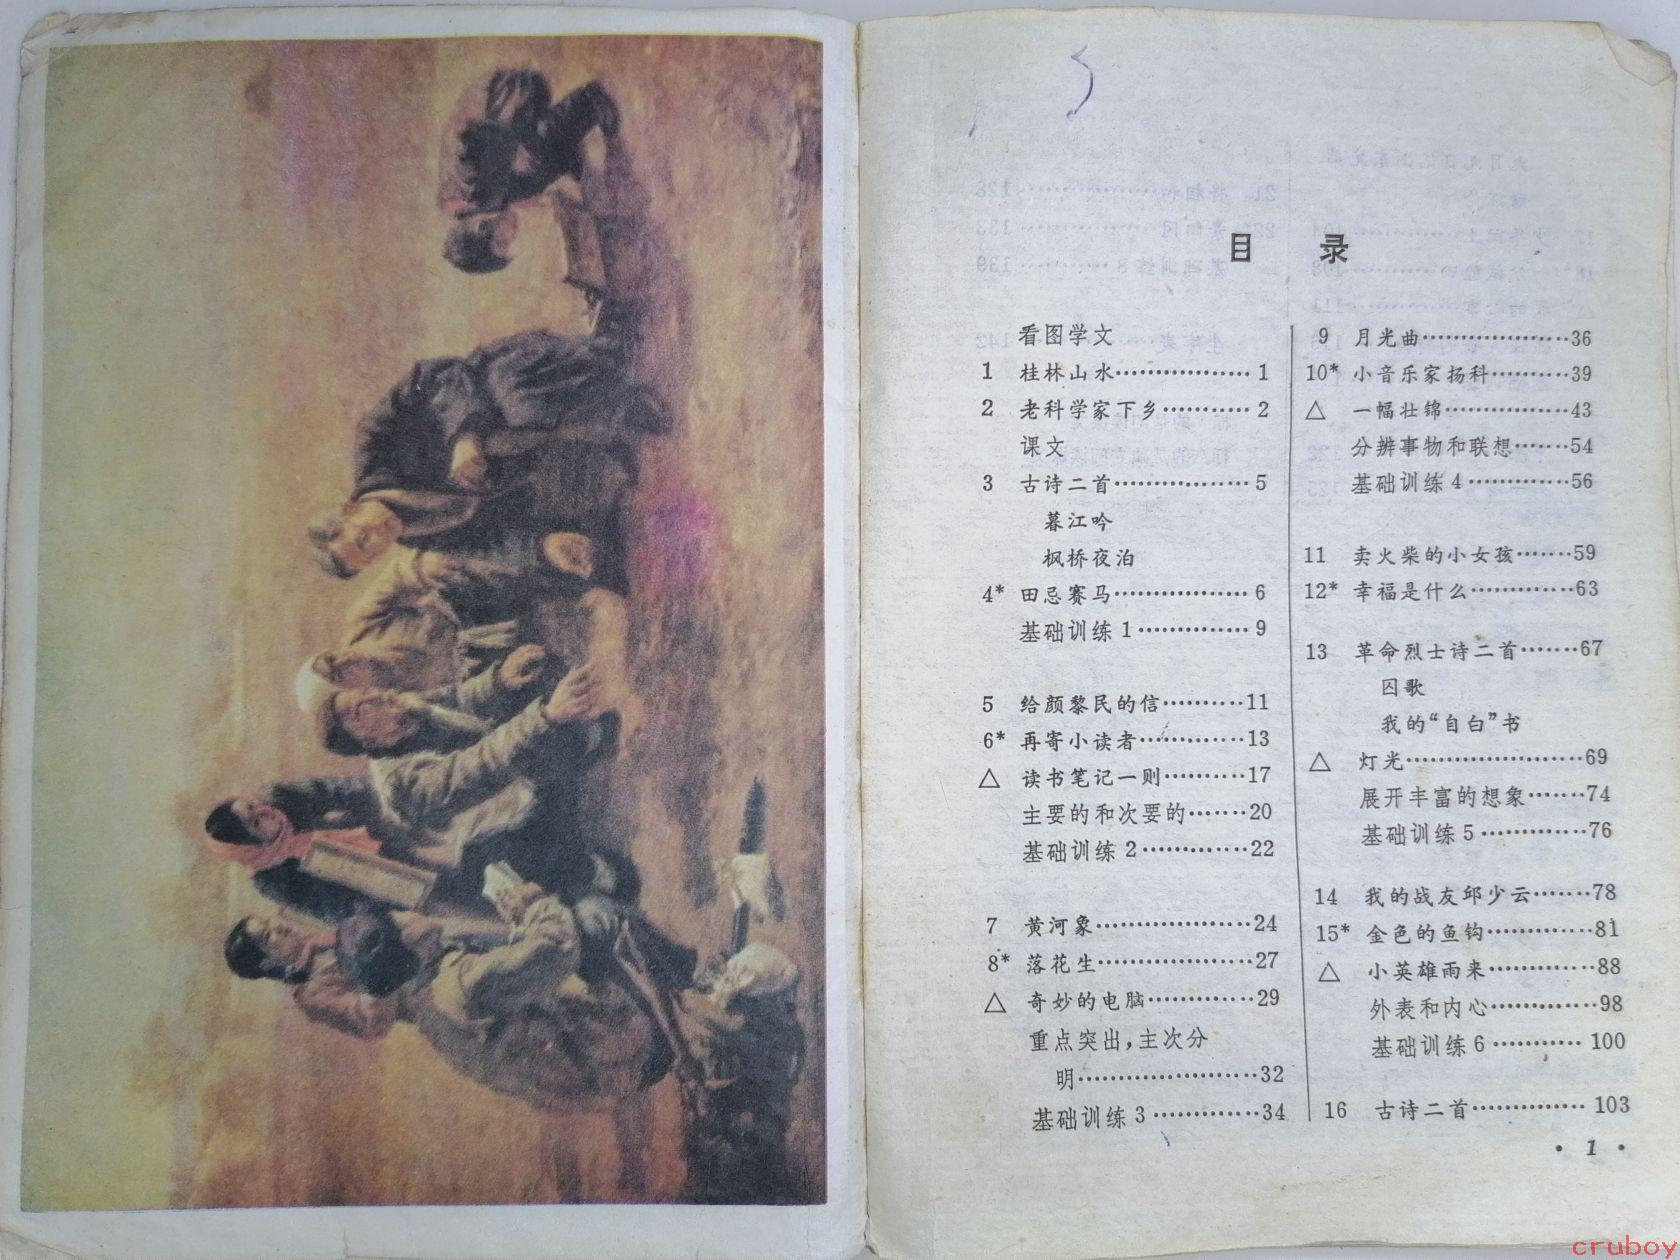 目 录
看图学文
1 桂林山水………………1
2 老科学家下乡…………2
课文
3 古诗二首………………5
暮江吟
枫桥夜泊
4* 田忌赛马………………6
基础训练1……………9
5 给颜黎民的信…………11
6* 再寄小读者……………13
△ 读书笔记一则…………17
主要的和次要的………20
基础训练2……………22
7 黄河象…………………24
8* 落花生…………………27
△ 奇妙的电脑……………29
重点突出,主次分
明………………………32
基础训练3……………34
9 月光曲…………………36
10* 小音乐家扬科…………39
△ 一幅壮锦………………43
分辨事物和联想………54
基础训练4……………56
11 卖火柴的小女孩………59
12* 幸福是什么……………63
13 革命烈士诗二首………67
囚歌
我的“自白”书
△ 灯光……………………69
展开丰富的想象………74
基础训练5……………76
14 我的战友邱少云………78
15* 金色的鱼钩……………81
△ 小英雄雨来……………88
外表和内心……………98
基础训练6…………100
16 古诗二首……………103
· 1 ·
cruboy